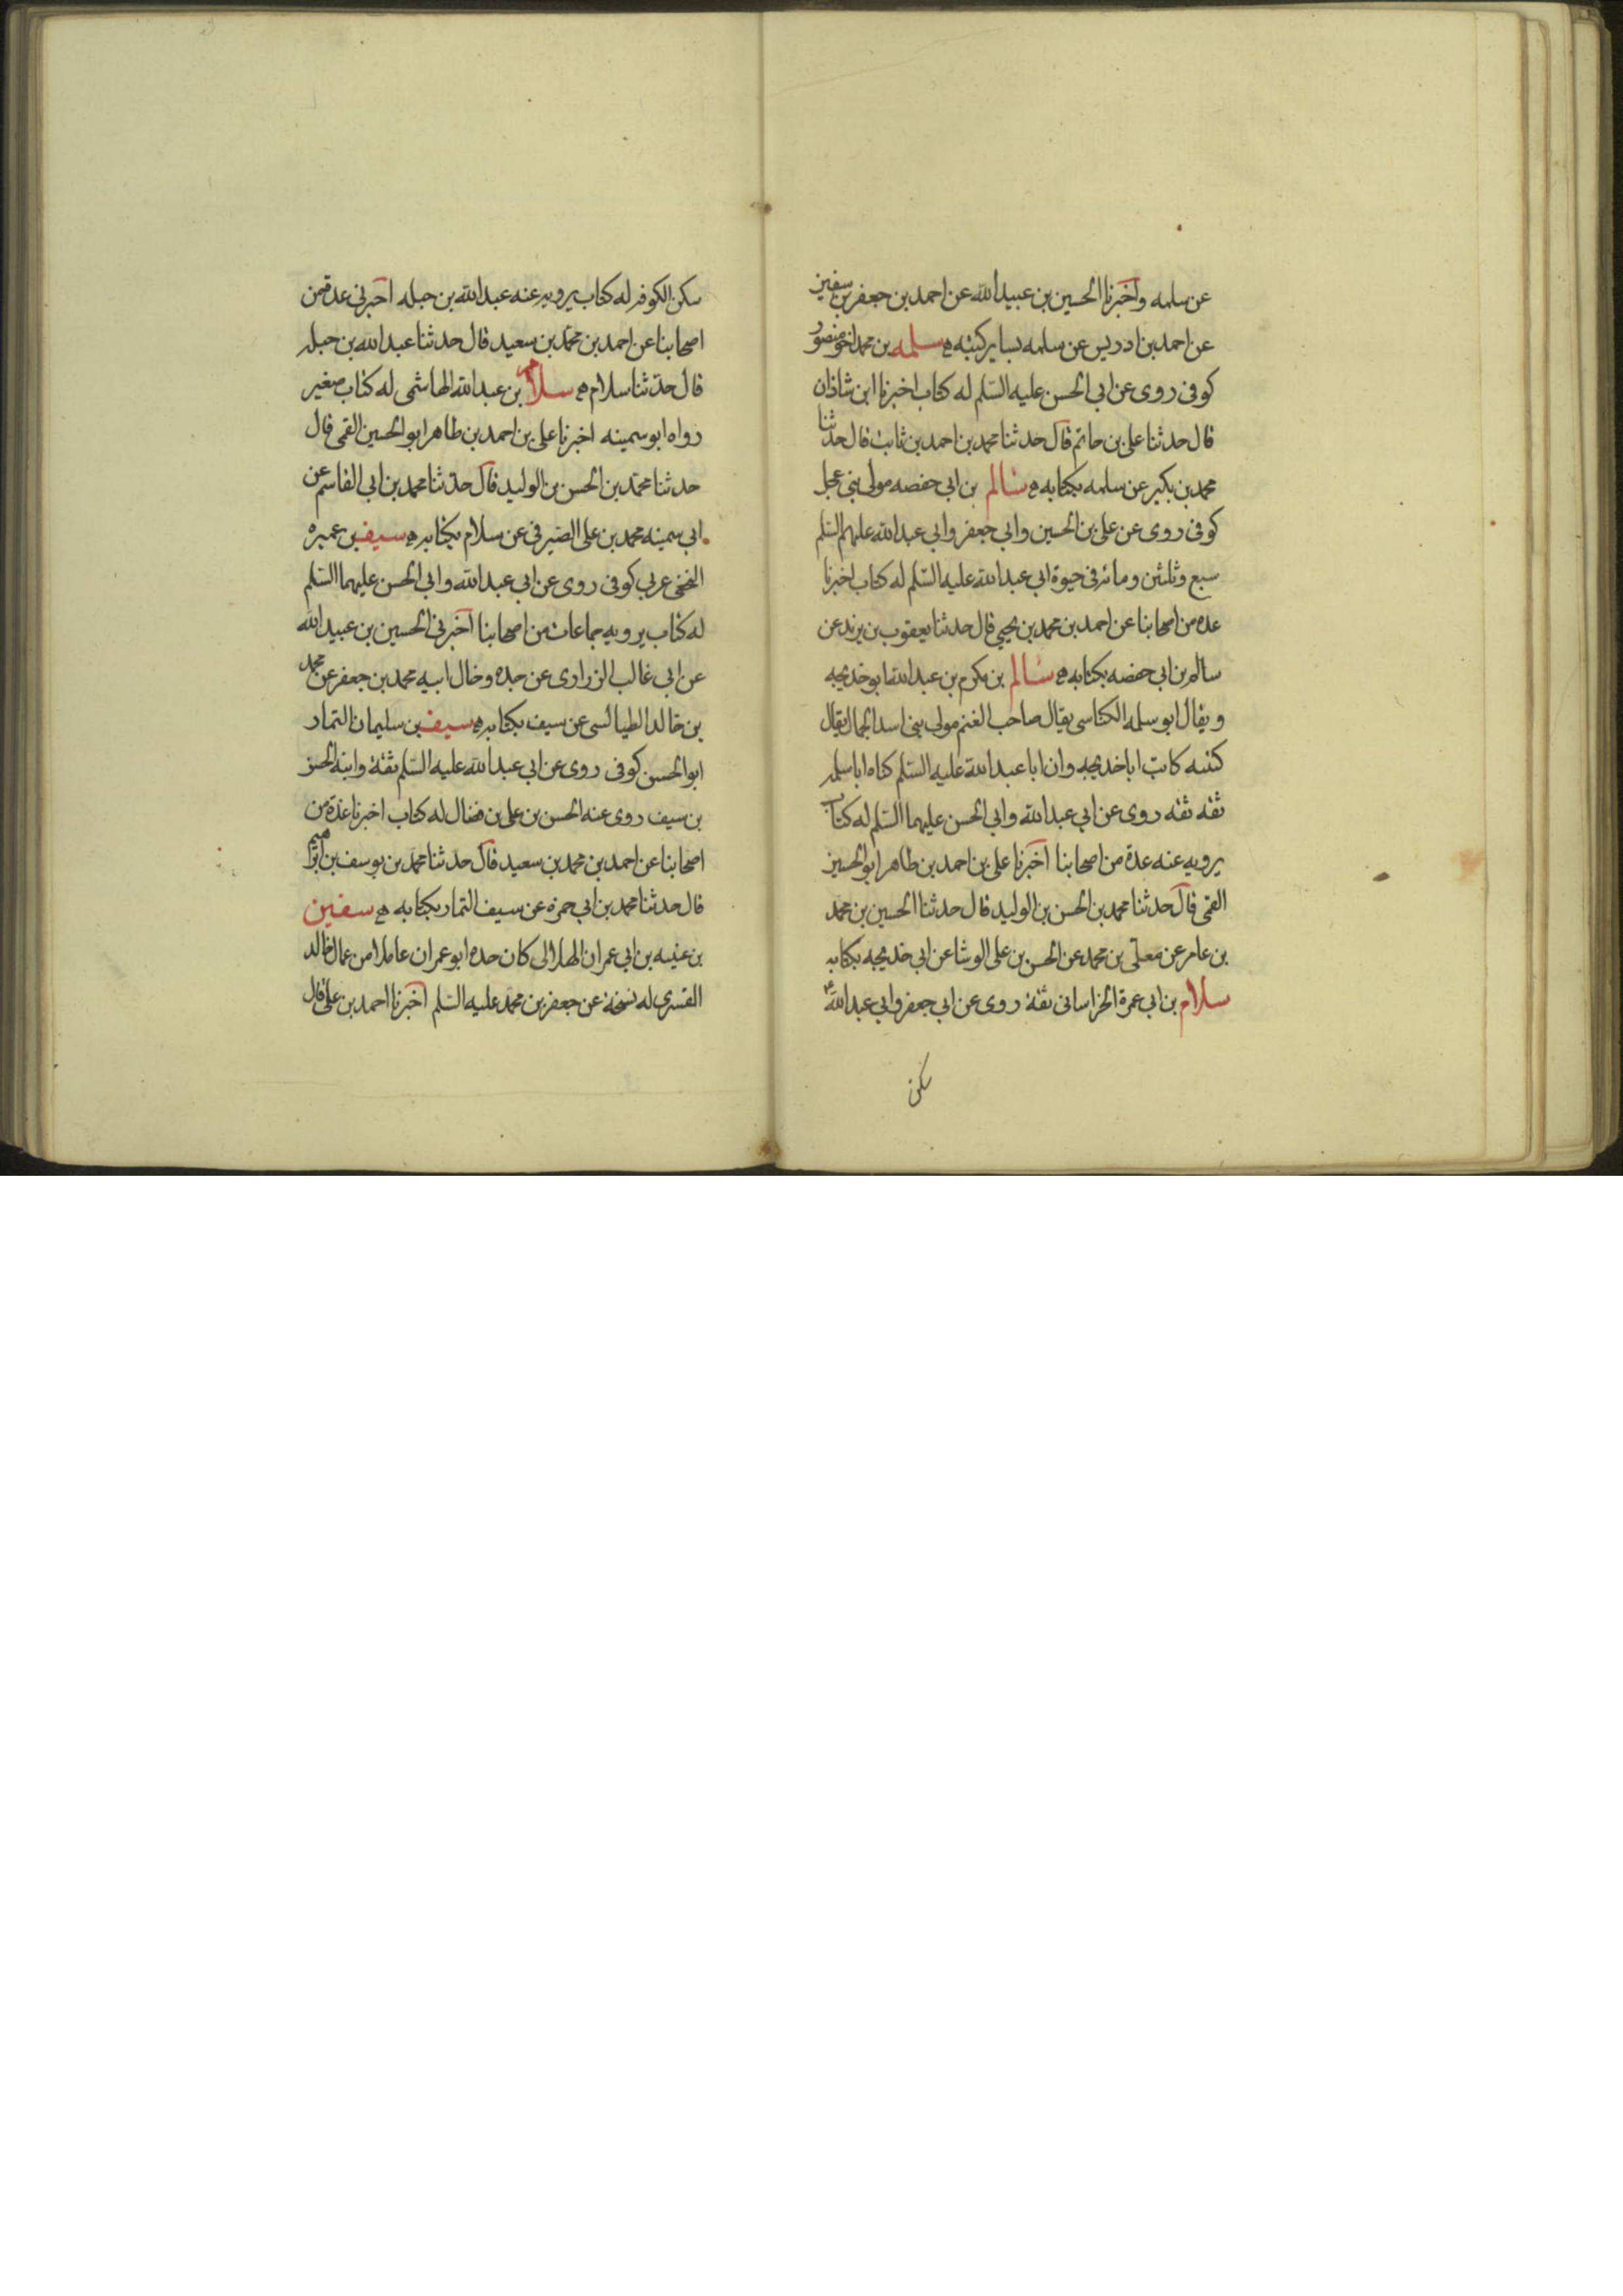 عن سلمه واخبرنا الحسين بن عبيد الله عن احمد بن جعفر بن سفين
عن احمد بن ادريس عن سلمه بساير كتبه ه سلمه بن محمد اخو منصور
كوفى روى عن ابى الحسن عليه السلم له كتاب اخبرنا ابن شاذان
قال حدثنا على بن حاتم قال حدثنا محمد بن احمد بن ثابت قال حدثنا
محمد بن بكير عن سلمه بكتابه ه سالم بن ابى حفصه مولى بنى عجل
كوفى روى عن على بن الحسين وابى جعفر وابى عبد الله عليهم السلم
سبع وثلثين ومائه فى حيوة ابى عبد الله عليه السلم له كتاب اخبرنا
عده من اصحابنا عن احمد بن محمد بن يحيى قال حدثنا يعقوب بن يزيد عن
سالم بن ابى حفصه بكتابه ه سالم بن مكرم بن عبد الله ابو خديجه
ويقال ابو سلمه الكناسى يقال صاحب الغنم مولى بنى اسد الجمال يقال
كنيه كانت ابا خديجه وان ابا عبد الله عليه السلم كناه ابا سلمه
ثقه ثقه روى عن ابى عبد الله وابى الحسن عليهما السلم له كتاب
يرويه عنه عدة من اصحابنا اخبرنا على بن احمد بن طاهر ابو الحسين
القمى قال حدثنا محمد بن الحسن بن الوليد قال حدثنا الحسين بن محمد
بن عامر عن معلى بن محمد عن الحسن بن على الوشا عن ابى خديجه بكتابه
سلام بن ابى عمرة الخراسانى ثقة روى عن ابى جعفر وابى عبد الله ع
سكن
سكن الكوفه له كتاب يرويه عنه عبد الله بن جبله اخبرنى عدة من
اصحابنا عن احمد بن محمد بن سعيد قال حدثنا عبد الله بن جبله
قال حدثنا سلام ه سلام بن عبد الله الهاشمى له كتاب صغير
رواه ابو سمينه اخبرنا على بن احمد بن طاهر ابو الحسين القمى قال
حدثنا محمد بن الحسن بن الوليد قال حدثنا محمد بن ابى القاسم عن
ابى سمينه محمد بن على الصيرفى عن سلام بكتابه ه سيف بن عميره
النخعى عربى كوفى روى عن ابى عبد الله وابى الحسن عليهما السلم
له كتاب يرويه جماعات من اصحابنا اخبرنى الحسين بن عبيد الله
عن ابى غالب الزرارى عن جده وخال ابيه محمد بن جعفر عن محمد
بن خالد الطيالسى عن سيف بكتابه ه سيف بن سليمان التمار
ابو الحسن كوفى روى عن ابى عبد الله عليه السلم ثقة وابنه الحسن
بن سيف روى عنه الحسن بن على بن فضال له كتاب اخبرنا عدة من
اصحابنا عن احمد بن محمد بن سعيد قال حدثنا محمد بن يوسف بن ابراهيم
قال حدثنا محمد بن ابى حمزه عن سيف التمار بكتابه ه سفين
بن عيينه بن ابى عمران الهلالى كان جده ابو عمران عاملا من عمال خالد
القسرى له نسخة عن جعفر بن محمد عليه السلم اخبرنا احمد بن على قال